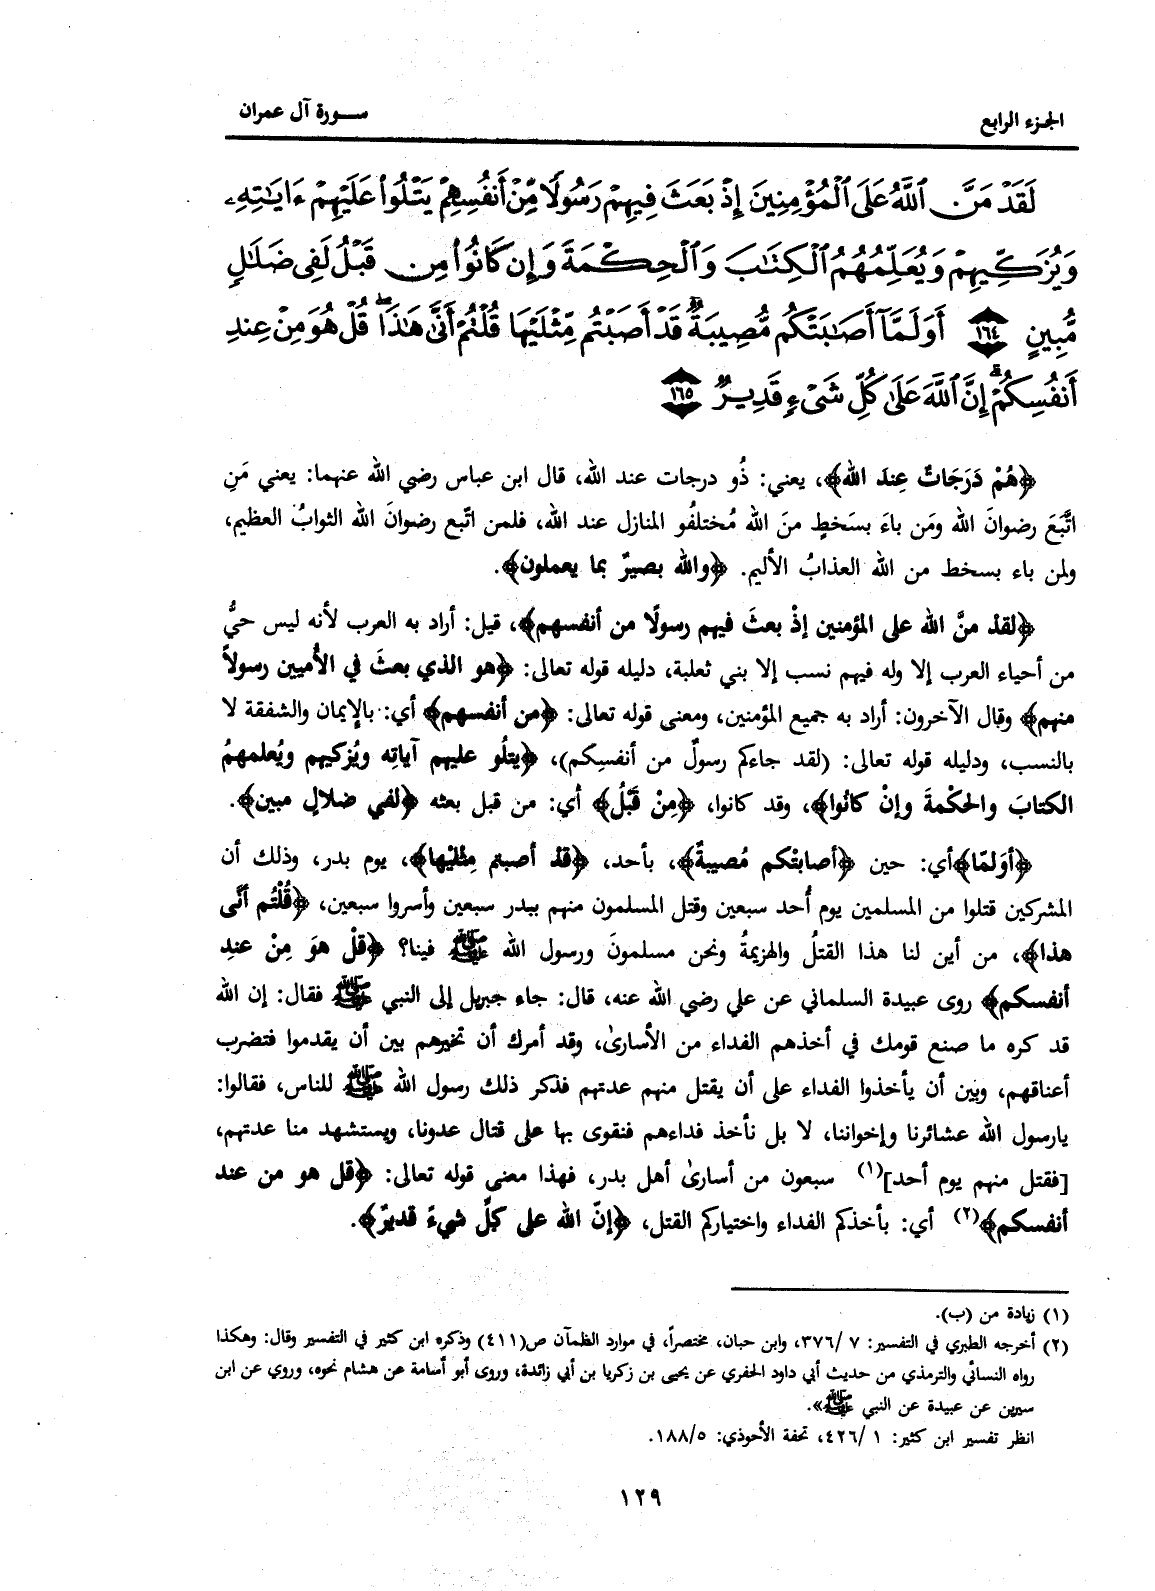 الجزء الرابع
ســـورة آل عمران
لَقَدْ مَنَّ ٱللَّهُ عَلَى ٱلْمُؤْمِنِينَ إِذْ بَعَثَ فِيهِمْ رَسُولًا مِّنْ أَنفُسِهِمْ يَتْلُوا۟ عَلَيْهِمْ ءَايَٰتِهِۦ
وَيُزَكِّيهِمْ وَيُعَلِّمُهُمُ ٱلْكِتَٰبَ وَٱلْحِكْمَةَ وَإِن كَانُوا۟ مِن قَبْلُ لَفِى ضَلَٰلٍ
مُّبِينٍ ١٦٤ أَوَلَمَّآ أَصَٰبَتْكُم مُّصِيبَةٌ قَدْ أَصَبْتُم مِّثْلَيْهَا قُلْتُمْ أَنَّىٰ هَٰذَا ۖ قُلْ هُوَ مِنْ عِندِ
أَنفُسِكُمْ ۗ إِنَّ ٱللَّهَ عَلَىٰ كُلِّ شَىْءٍ قَدِيرٌ ١٦٥
﴿هُمْ دَرَجَاتٌ عِندَ الله﴾، يعني: ذُو درجات عند الله، قال ابن عباس رضي الله عنهما: يعني مَنِ
اتَّبَعَ رضوانَ الله ومَن باءَ بسَخطٍ منَ الله مُختلفُو المنازل عند الله، فلمن اتّبع رضوانَ الله الثوابُ العظيم،
ولمن باء بسخط من الله العذابُ الأليم. ﴿والله بصيرٌ بما يعملون﴾.
﴿لقدْ منَّ الله على المؤمنين إذْ بعثَ فيهم رسولًا من أنفسهم﴾، قيل: أراد به العرب لأنه ليس حيُّ
من أحياء العرب إلا وله فيهم نسب إلا بني ثعلبة، دليله قوله تعالى: ﴿هو الذي بعثَ في الأُميين رسولاً
منهم﴾ وقال الآخرون: أراد به جميع المؤمنين، ومعنى قوله تعالى: ﴿من أنفسهم﴾ أي: بالإيمان والشفقة لا
بالنسب، ودليله قوله تعالى: (لقد جاءكم رسولٌ من أنفسِكم)، ﴿يتلُو عليهم آياتِه ويُزكيهم ويُعلمهمُ
الكتابَ والحكْمةَ وإنْ كانُوا﴾، وقد كانوا، ﴿مِنْ قَبْلُ﴾ أي: من قبل بعثه ﴿لفي ضلالٍ مبين﴾.
﴿أوَلمّا﴾أي: حين ﴿أصابتْكم مُصيبةٌ﴾، بأحد، ﴿قدْ أصبتم مِثْليْها﴾، يوم بدر، وذلك أن
المشركين قتلوا من المسلمين يوم أُحد سبعين وقتل المسلمون منهم ببدر سبعين وأسروا سبعين، ﴿قُلْتُم أنَّى
هذا﴾، من أين لنا هذا القتلُ والهزيمةُ ونحن مسلمونَ ورسول الله ﷺ فينا؟ ﴿قلْ هوَ مِنْ عندِ
أنفسكم﴾ روى عبيدة السلماني عن علي رضي الله عنه، قال: جاء جبريل إلى النبي ﷺ فقال: إن الله
قد كره ما صنع قومك في أخذهم الفداء من الأسارىٰ، وقد أمرك أن تخيرهم بين أن يقدموا فتضرب
أعناقهم، وبين أن يأخذوا الفداء على أن يقتل منهم عدتهم فذكر ذلك رسول الله ﷺ للناس، فقالوا:
يارسول الله عشائرنا وإخواننا، لا بل نأخذ فداءهم فنقوى بها على قتال عدونا، ويستشهد منا عدتهم،
[فقتل منهم يوم أحد](١) سبعون من أسارىٰ أهل بدر، فهذا معنى قوله تعالى: ﴿قل هو من عند
أنفسكم﴾(٢) أي: بأخذكم الفداء واختياركم القتل، ﴿إنّ الله على كلِّ شيءً قديرٌ﴾.
(١) زيادة من (ب).
(٢) أخرجه الطبري في التفسير: ٧ /٣٧٦، وابن حبان، مختصراً، في موارد الظمآن ص(٤١١) وذكره ابن كثير في التفسير وقال: وهكذا
رواه النسائي والترمذي من حديث أبي داود الحفري عن يحيى بن زكريا بن أبي زائدة، وروى أبو أسامة عن هشام نحوه، وروي عن ابن
سيرين عن عبيدة عن النبي ﷺ».
انظر تفسير ابن كثير: ١ /٤٢٦، تحفة الأحوذي: ١٨٨/٥.
١٢٩